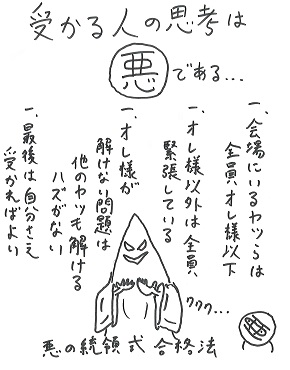 受かる人の思考は
悪である…
一、会場にいるヤツらは
全員オレ様以下
一、オレ様以外は全員
緊張している
一、オレ様が
解けない問題は
他のヤツも解ける
ハズがない
一、最後は自分さえ
受かればよい
ククク…
悪の統領式 合格法